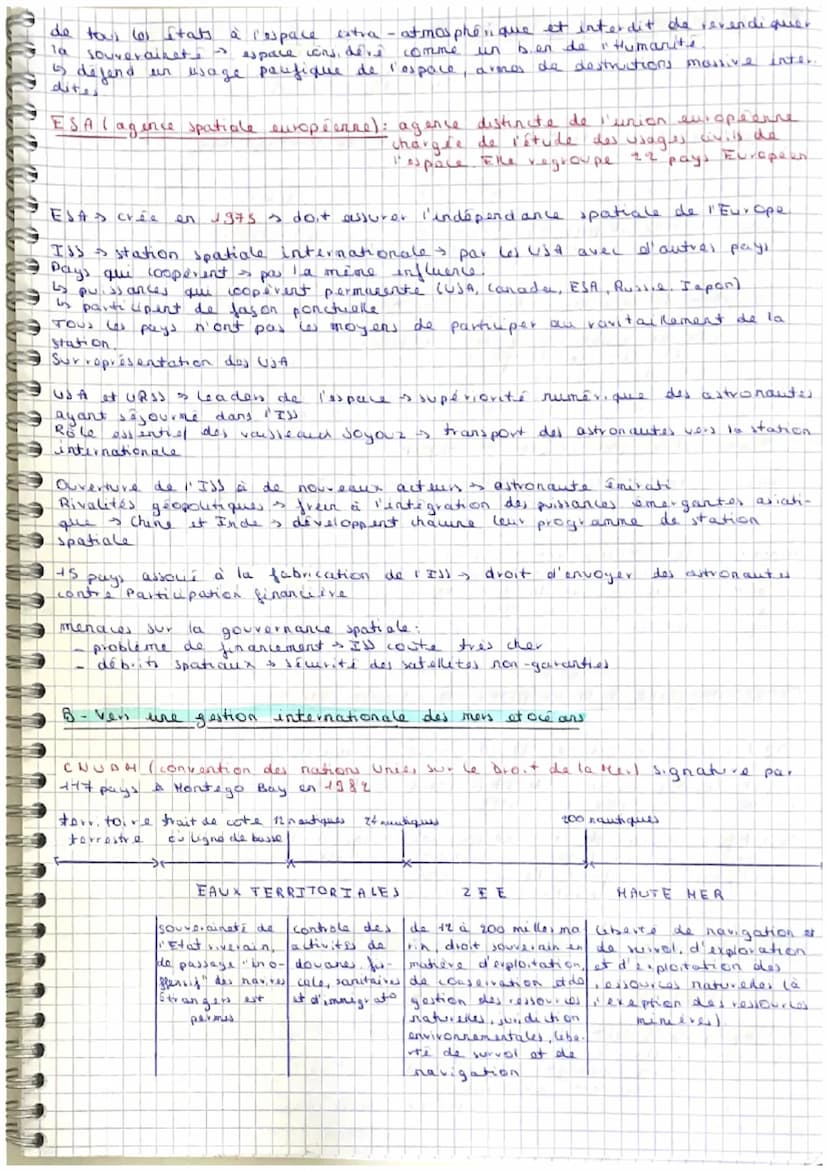 de tous les états à l'espace extra-atmosphérique et interdit de revendiquer
la souveraineté → espace considéré comme un bien de l'Humanité.
↳ défend un usage pacifique de l'espace, armes de destructions massive inter-
dites
ESA (agence spatiale européenne): agence distincte de l'union européenne
chargée de l'étude des usages civils de
l'espace. Elle regroupe 22 pays Européen
ESA → crée en 1975 → doit assurer l'indépendance spatiale de l'Europe
ISS → station spatiale internationale → par les USA avec d'autres pays
Pays qui coopèrent → pas la même influence.
↳ puissances qui coopèrent permanente (USA, Canada, ESA, Russie, Japon)
↳ participent de façon ponctuelle
Tous les pays n'ont pas les moyens de participer au ravitaillement de la
station.
Surreprésentation des USA
USA et URSS → leaders de l'espace → supériorité numérique des astronautes
ayant séjourné dans l'ISS
Rôle essentiel des vaisseaux Soyouz → transport des astronautes vers la station
internationale
Ouverture de l'ISS à de nouveaux acteurs → astronaute émirati
Rivalités géopolitiques → frein à l'intégration des puissances émergantes asiati-
que → Chine et Inde → développent chacune leur programme de station
spatiale
15 pays associé à la fabrication de l'ISS → droit d'envoyer des astronautes
contre Participation financière
menaces sur la gouvernance spatiale:
- problème de financement → ISS coute très cher
- débrits spatiaux → sécurité des satellites non-garanties
B - Vers une gestion internationale des mers et océans
CNUDM (convention des nations Unies sur le Droit de la Mer) signature par
117 pays à Montego Bay en 1982
territoire trait de cote 12 nautiques 24 nautiques 200 nautiques
terrestre ou ligne de base
EAUX TERRITORIALES ZEE HAUTE MER
souveraineté de controle des de 12 à 200 milles ma liberté de navigation et
l'Etat riverain, activités de rin, droit souverain en de survol, d'exploration
de passage "ino- douanes, fis- matière d'exploitation, et d'exploitation des
ffensif" des navires cale, sanitaires de conservation et de ressources naturelles (à
étrangers est et d'immigrato gestion des ressources l'exeption des ressources
permis naturelles, juridiction minières)
environnementales, liber-
té de survol et de
navigation